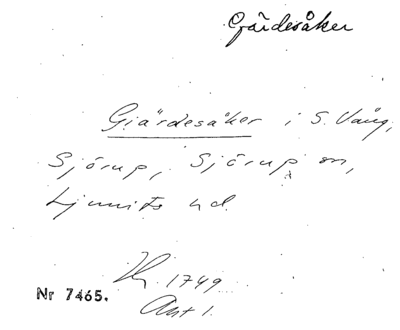 Gärdesåker
Giärdesåker i S. Vång,
Sjörup, Sjörup sn,
Ljunits hd.
1749
Nr 7465.
Akt 1.